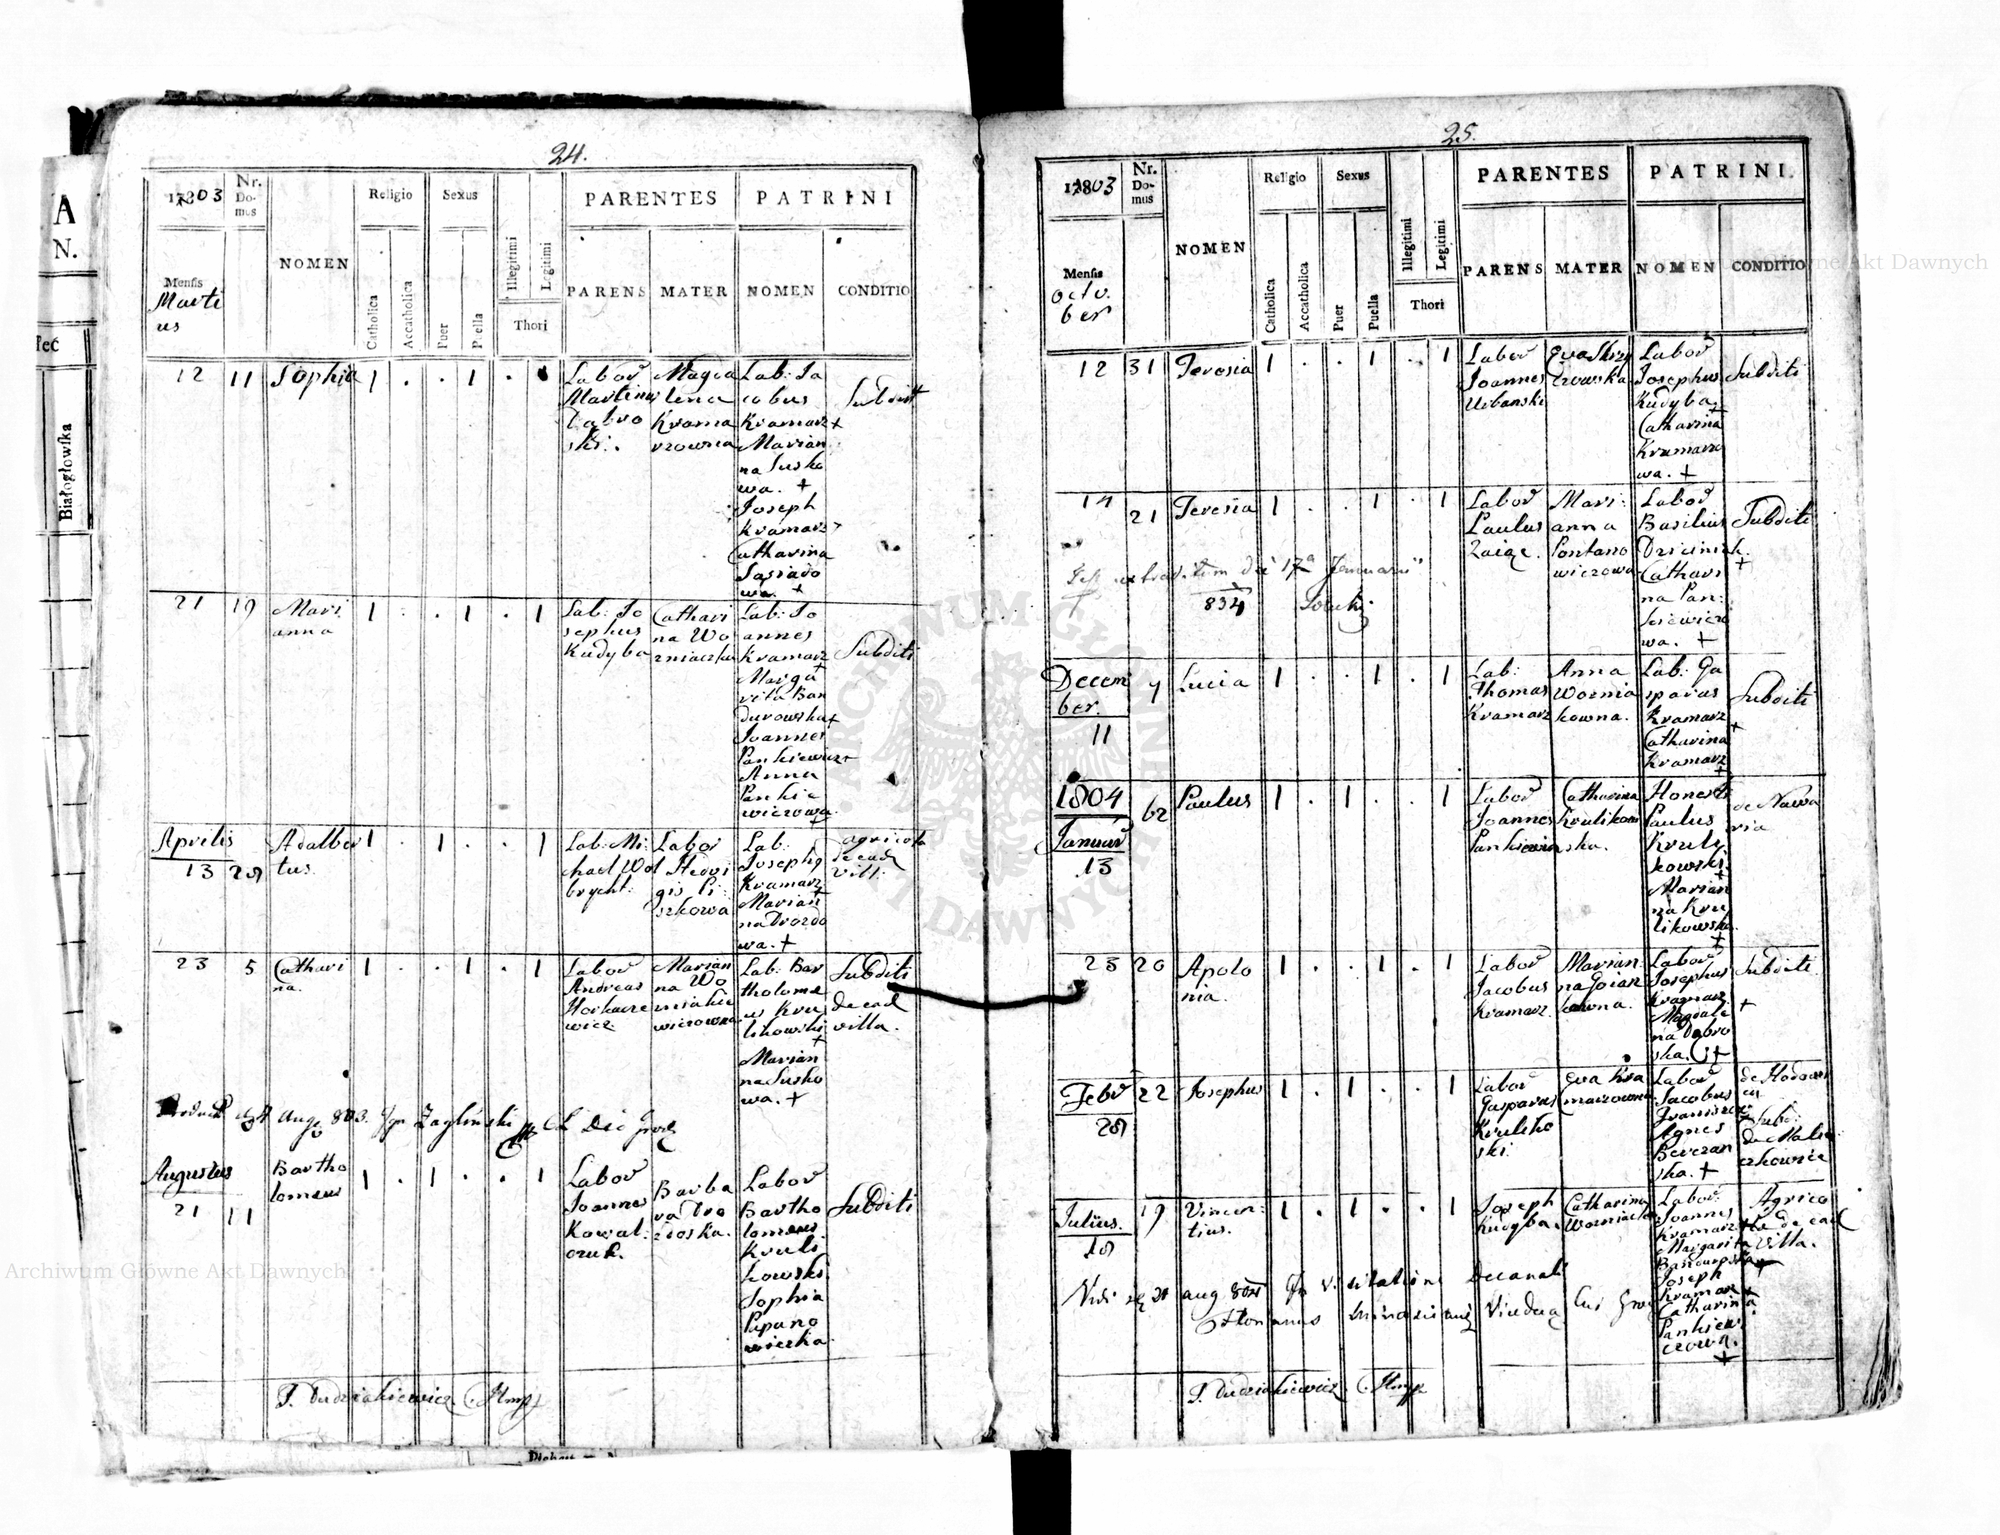 24.
1803
Nr. Domus
NOMEN
Religio
Sexus
PARENTES
PATRINI
Mensis
Martius
Catholica
Accatholica
Puer
Puella
Illegitimi
Legitimi
Thori
PARENS
MATER
NOMEN
CONDITIO
12 11 Sophia 1 . . 1 .
Labor
Martinus
Dąbro
ski.
Magda
lena
Krama
rzowna
Lab: Ja
cobus
Kramarz +
Marian
na Susko
wa. +
Joseph
Kramarz
Catharina
Sąsiado
wa. +
Subditi
21 19 Mari
anna
1 . . 1 . 1
Lab: Jo
sephus
Kudyba
Cathari
na Wo
zniaczka
Lab: Jo
annes
Kramarz
+
Marga
rita Ban
durowska +
Joannes
Pankiewicz +
Anna
Pankie
wiczowa
+
Subditi
Aprilis
13 28
Adalber
tus.
1 . 1 . . 1
Lab: Mi:
chael Wol
brycht:
Labor
Hedvi
gis Li
szkowa
Lab:
Joseph9
Kramarz
+
Marian
na Drozdo
wa. +
agricola
de ead
vill:
23 5 Cathari
na.
1 . . 1 . 1
Labor
Andreas
Horkawie
wicz
Marian
na Wo
zniakie
wiczowna
Lab: Bar
tholome
us Kru
likowski
+
Marian
na Susko
wa. +
Subditi
de ead
villa.
Aug 803. Zagliński
Augustus
21 11
Bartho
lomeus
1 . 1 . . 1
Labor
Joannes
Kowal:
czuk.
Barba
ra Dro
zdoska.
Labor
Bartho
lomeus
Kruli
kowski
Sophia
Papano
wiczka
Subditi
J. Dudziakiewicz
25.
1803
Nr. Domus
NOMEN
Religio
Sexus
PARENTES
PATRINI.
Mensis
Octo.
ber
Catholica
Accatholica
Puer
Puella
Illegitimi
Legitimi
Thori
PARENS
MATER
NOMEN
CONDITIO
12 31 Teresia 1 . . 1 . 1
Labor
Joannes
Urbanski
Eva Skrzy
czowska
Labor
Josephus
Kudyba
+
Catharina
Kramarzo
wa. +
Subditi
14 21 Teresia 1 . . 1 . 1
Labor
Paulus
Zając.
Mari:
anna
Pontano
wiczowa
Labor
Basilius
Dziciniak.
+
Cathari
na Pan:
kiewiczo
wa. +
Subditi
Est extraditum die 17a Januarii
834
Decem
ber.
11
7 Lucia 1 . . 1 . 1
Lab:
Thomas
Kramarz
Anna
Woznia
kowna.
Lab: Ga
sparus
Kramarz
+
Catharina
Kramarz
+
Subditi
1804
Januar
13
62 Paulus 1 . 1 . . 1
Labor
Joannes
Pankiewicz
Catharina
Krulikow
ska.
Honesti
Paulus
Kruli
kowski
+
Marian
na Kru
likowska
+
de Nawa
ria
23 20 Apolo
nia.
1 . . 1 . 1
Labor
Jacobus
Kramarz
Marian:
na Goiaz
kowna.
Labor
Josephus
Kramarz
+
Magdale
na Dąbro
ska. +
Subditi
Febr
28
22 Josephus 1 . 1 . . 1
Labor
Gasparus
Kruliko
ski
Eva Kra
marzowna
Labor
Jacobus
Agnes
Beveran
ska. +
de Hodowi
ca
Subdi:
de Mali
czkowice
Julius.
18
19 Vincen:
tius.
1 . 1 . . 1
Joseph
Kudyba.
Catharina
Wozniaczka
Labor:
Joannes
Kramarz +
Margarita
Bandurowska
+
Joseph
Kramarz +
Catharina
Pankiewi
czowa.
+
Agrico
læ de ead
villa.
Vidi aug 804 In visitatione Decanali
J. Dudziakiewicz
A
N.
Białogłowska
Archiwum Główne Akt Dawnych
Archiwum Główne Akt Dawnych
ARCHIWUM GŁÓWNE
AKT DAWNYCH